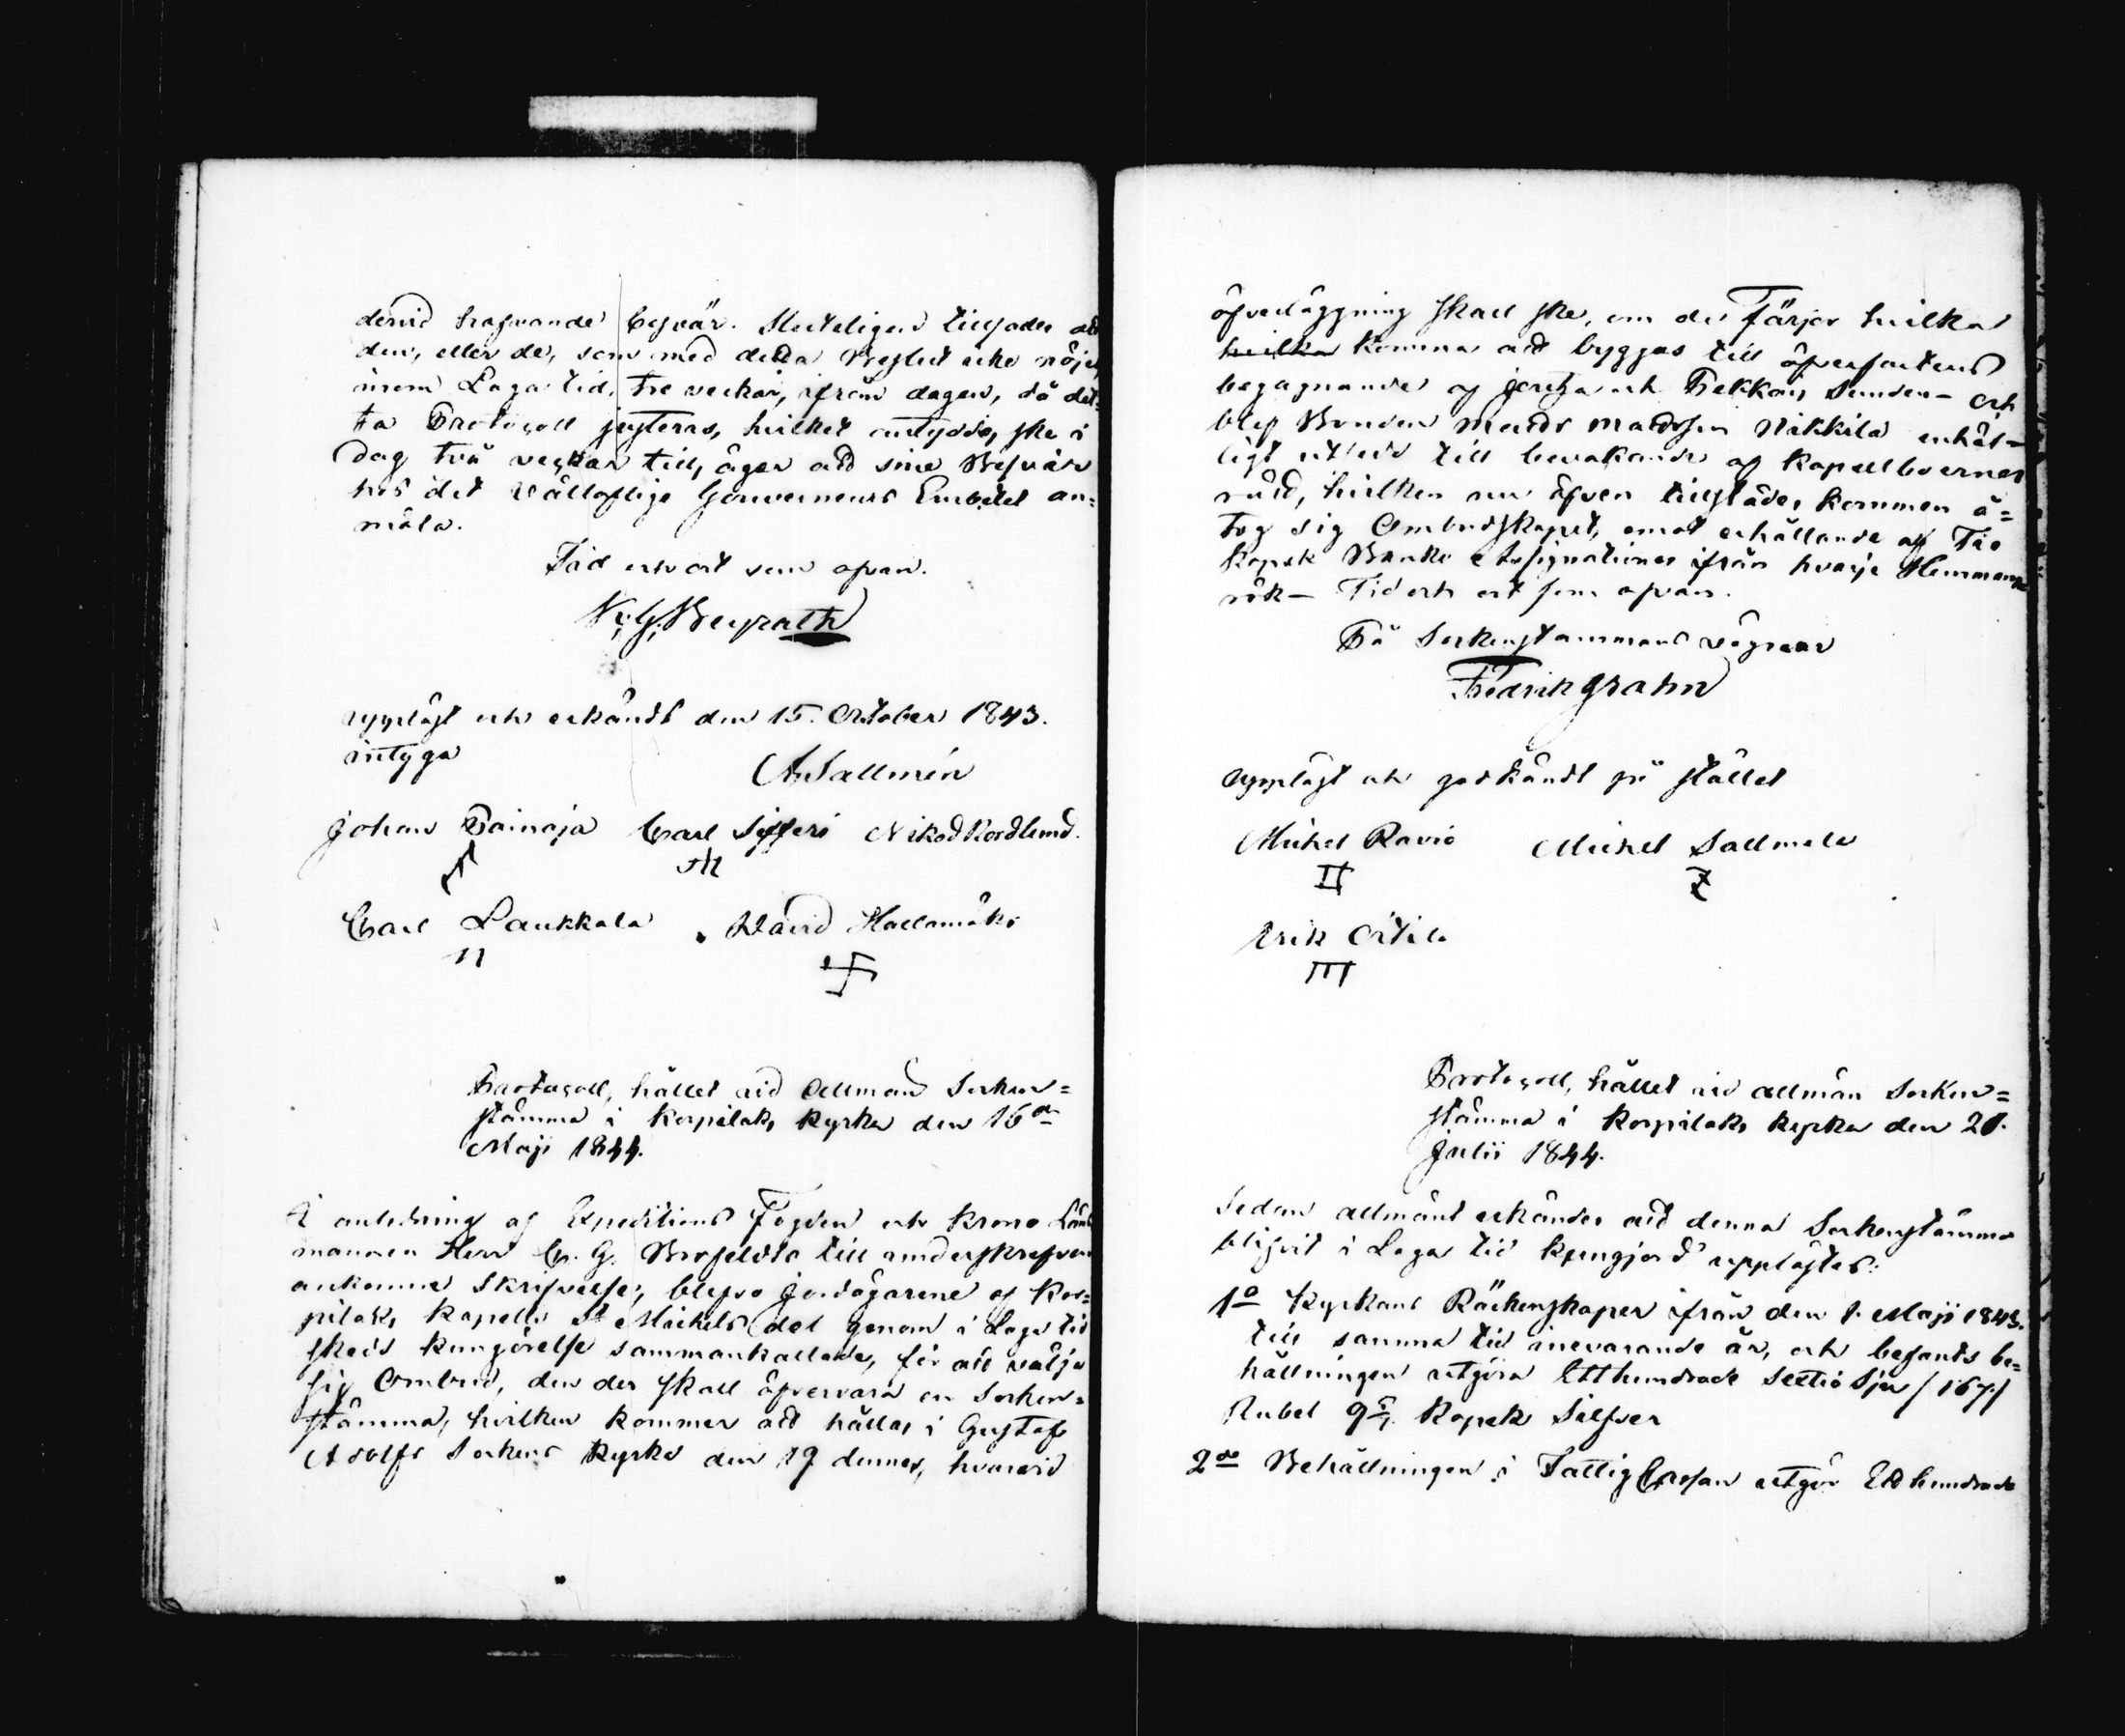 dervid hafvande besvär. Sluteligen tillsades att
den, eller de, som med detta Beslut icke nöjes
inom Laga tid, tre veckor, ifrån dagen, då det=
ta Protocoll justeras, hvilket antyddes ske i
dag två veckor till, äger att sine Besvär
hos det Välloflige Gouverneurs Embetet an=
mäla.
Tid och ort som ofvan.
Beyrath
uppläst och erkändt den 15. October 1843.
intyga
A. Sallmén
Johan Painaja Carl Sifferi Nikod Nordlund.
Carl Laukkala David Hallamäki
Protocoll, hållet vid Allmän Socken=
stämma i Korpilaks kyrka den 16de
Maji 1844.
I anledning af Expeditions Fogden och Krono Läns
mannen Herr C. G. Brofeldts till underskrefven
ankomne skrifvelse, blefvo Jordägarene af Kor=
pilaks Kapells St Michels del genom i Laga tid
skedd kungörelse sammankallade, för att välja
sig Ombud, den der skall öfvervara en Socken=
stämma, hvilken kommer att hållas i Gustaf
Adolfs Sockens kyrka den 19 dennes, hvarvid
öfverläggning skall ske, om de Färjor hvilka
hvilka komma att byggas till öfverfartens
begagnande af och Pekkas Sunden – och
blef Bonden Matts Mattsson Nikkilä enhäl=
ligt utsedd till bevakande af Kapellboernes
rätt, hvilken nu äfven tillstädes kommen å=
tog sig Ombudskapet, emot erhållande af Tio
Kopek Banko Assignationer ifrån hvarje Hemmans
rök – Tid och ort som ofvan.
På Sockenstämmans vägnar
Fredrik Grahn
Uppläst och godkändt på stället
Michel Ravio Michel Sallmela
II
Erik Ortila
III
Protocoll, hållet vid allmän Socken=
stämma i Korpilaks kyrka den 21.
Julii 1844.
Sedan allmänt erkändes att denna Sockenstämma
blifvit i Laga tid kungjord upplästes:
1o Kyrkans Räkenskaper ifrån den 1. Maji 1843.
till samma tid innevarande år, och befants be=
hållningen utgöra Etthundrade Sextio Sju /167/
Rubel 9 5/7 Kopek Silfver
2do Behållningen i Fattig Cassan utgör Etthundrade